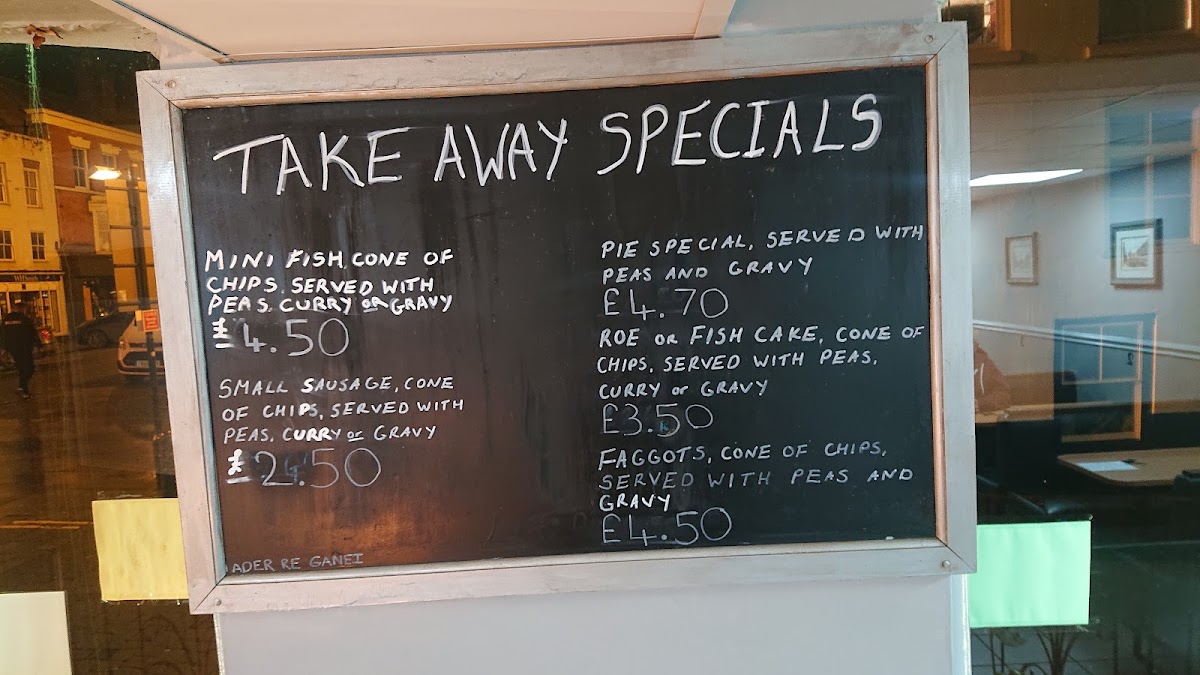 TAKE AWAY SPECIALS
MINI FISH, CONE OF
CHIPS. SERVED WITH
PEAS, CURRY or GRAVY
£4.50
SMALL SAUSAGE, CONE
OF CHIPS, SERVED WITH
PEAS, CURRY or GRAVY
£2.50
ADER RE GANEI
PIE SPECIAL, SERVED WITH
PEAS AND GRAVY
£4.70
ROE or FISH CAKE, CONE OF
CHIPS, SERVED WITH PEAS,
CURRY or GRAVY
£3.50
FAGGOTS, CONE OF CHIPS,
SERVED WITH PEAS AND
GRAVY
£4.50